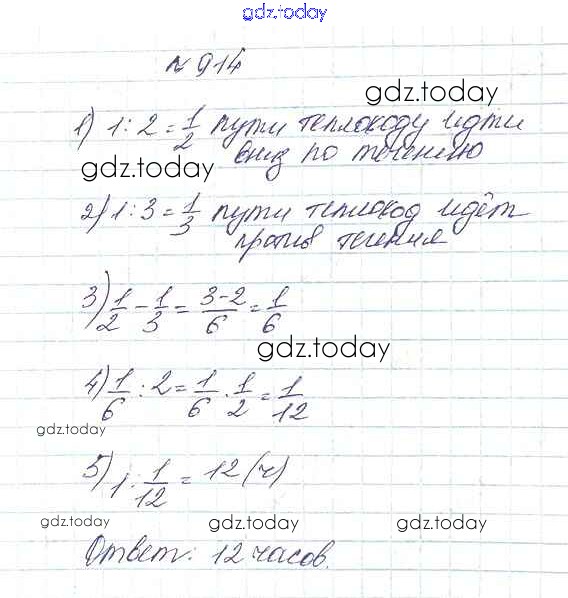 gdz.today
№ 914
gdz.today
1) 1 : 2 = 1/2 пути теплоходу идти
вниз по течению
gdz.today
2) 1 : 3 = 1/3 пути теплоход идёт
против течения
3) 1/2 - 1/3 = 3-2/6 = 1/6
gdz.today
4) 1/6 : 2 = 1/6 · 1/2 = 1/12
gdz.today
5) 1 : 1/12 = 12 (ч)
gdz.today gdz.today gdz.today
Ответ: 12 часов.